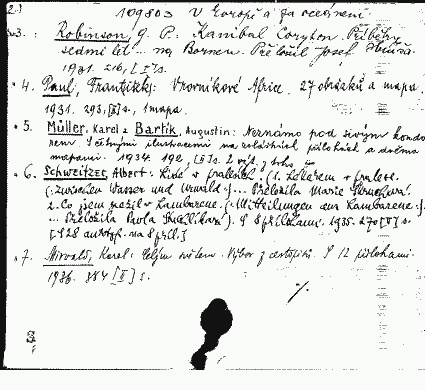 109803 V Evropě a za oceánem.
3. : Robinson, G. P.: Kanibal Corykon. Příběhy
sedmi let ... na Borneu. Přeložil Josef Hůša.
1931. 216, [I] s.
4. Paul, František: V rovníkové Africe. 27 obrázků a mapa.
1931. 293, [I] s., 1 mapa.
5. Müller, Karel a Bartík, Augustin: Neznámo pod sivým kondo-
rem. S četnými ilustracemi na zvláštních přílohách a dvěma
mapami. 1934. 192, [I] s. 2 výt. z toho
6. Schweitzer, Albert: Lidé v pralese. (1. Lékařem v pralese.
(:Zwischen Wasser und Urwald:) ... Přeložila Marie
2. Co jsem zažil v Lambarene. (:Mitteilungen aus Lambarene:)
... Přeložila Pavla S 8 přílohami. 1935. 270 [I] s.
[S 28 autotyp. na 8 příl.]
7. Mirvald, Karel: Celým světem. Výbor z cestopisů. S 12 přílohami.
1936. 384 [II] s.